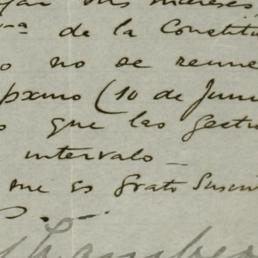 sus intereses
va de la Constitu
o no se reune
pxmo (10 de Juni
que las gestio
intervalo —
me es grato suscri